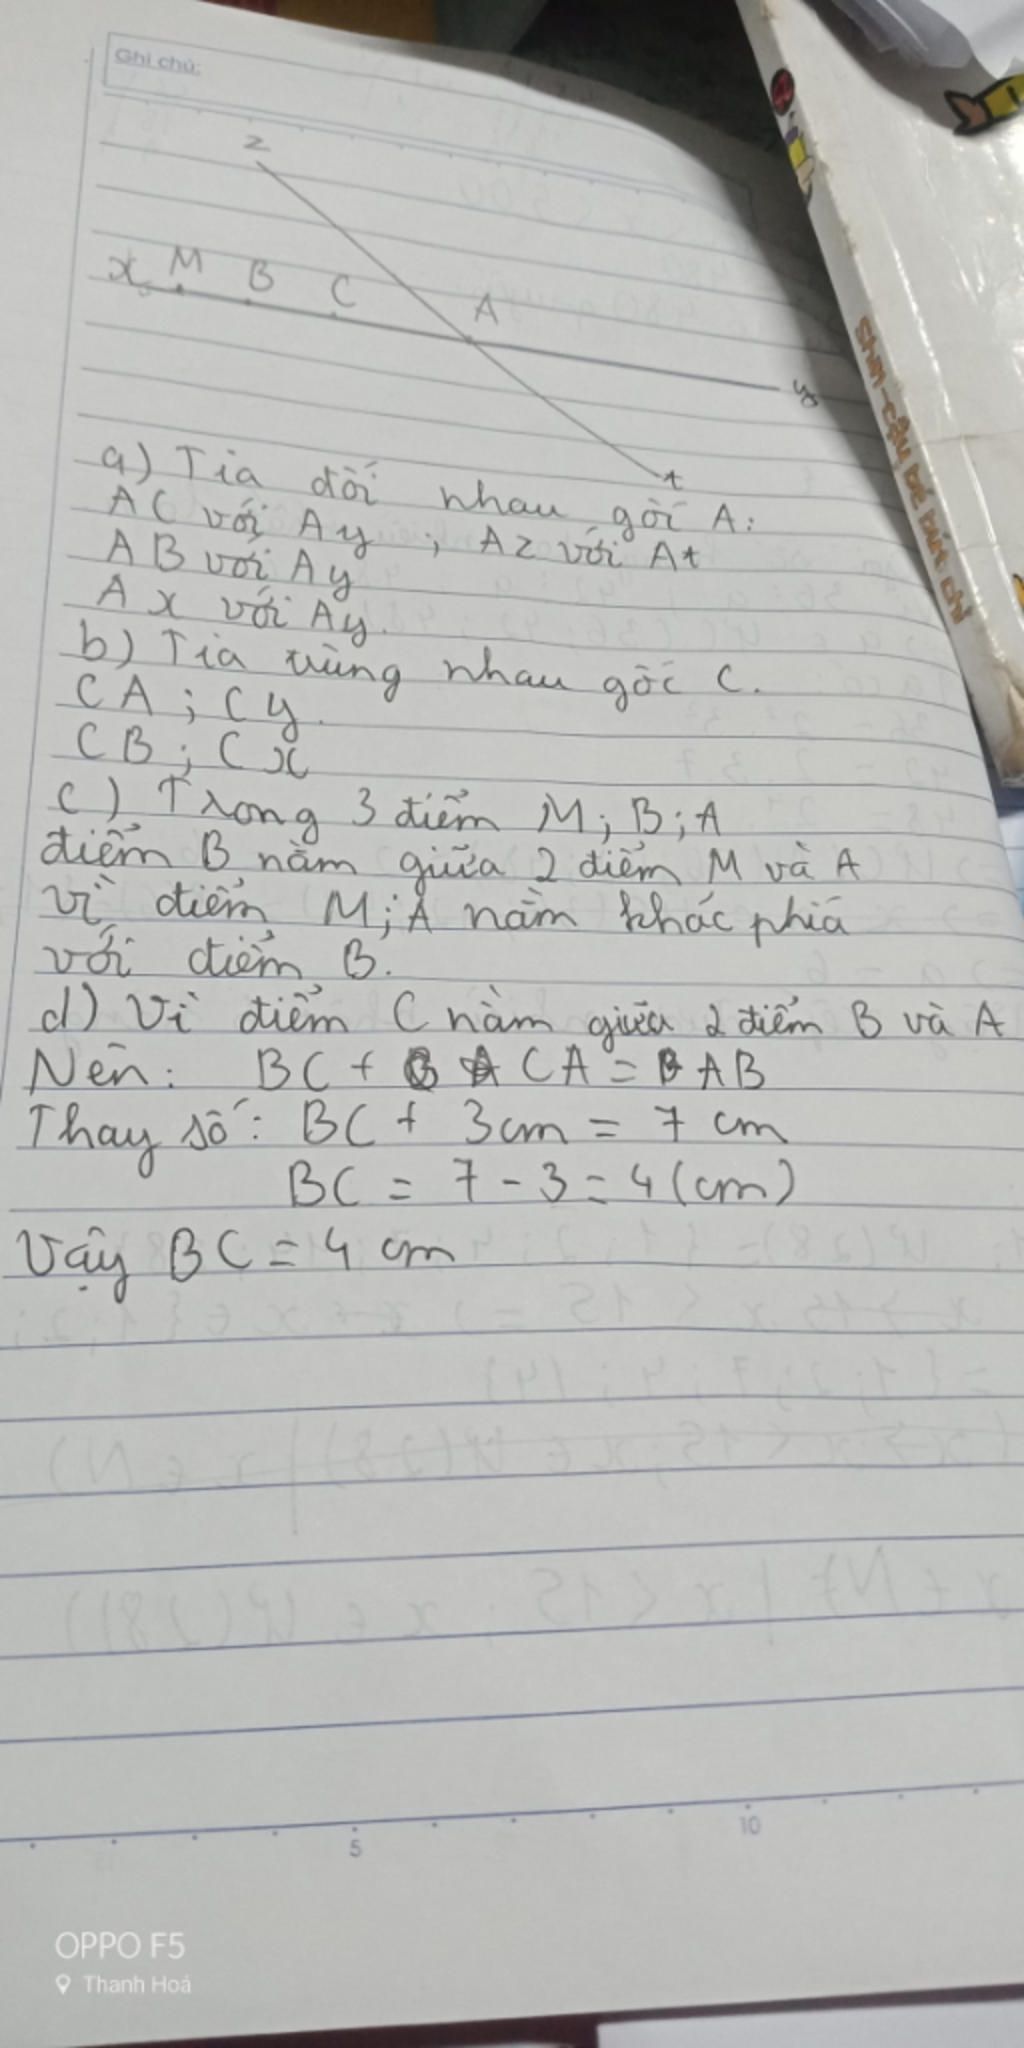 Ghi chú:
z
x M B C A
y
t
a) Tia đối nhau gốc A:
AC với Ay ; Az với At
AB với Ay
Ax với Ay.
b) Tia trùng nhau gốc C.
CA ; Cy.
CB ; Cx
c) Trong 3 điểm M ; B ; A
điểm B nằm giữa 2 điểm M và A
vì điểm M ; A nằm khác phía
với điểm B.
d) Vì điểm C nằm giữa 2 điểm B và A
Nên: BC + CA = AB
Thay số: BC + 3cm = 7 cm
BC = 7 - 3 = 4 (cm)
Vậy BC = 4 cm
5 10
OPPO F5
Thanh Hoá